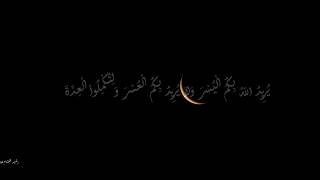 يُرِيدُ اللَّهُ بِكُمُ الْيُسْرَ وَلَا يُرِيدُ بِكُمُ الْعُسْرَ وَلِتُكْمِلُوا الْعِدَّةَ